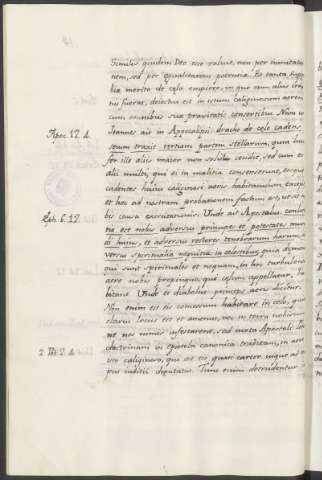 Similis quidem Deo esse voluit, non per imitatio
nem, sed per aequalitatem potentiae. Et tanta superbia
bia merito de celo empireo, in quo cum aliis
fuerat, deiectus est in istum caliginosum aerem
cum omnibus suae pravitatis consortibus. Nam ut
Apoc. 12. 4.
Joannes ait in Apocalipsi: draco de celo cadens
secum traxit tertiam partem stellarum, quia luci
fer ille aliis maior non solus cecidit, sed cum eo
alii multi, qui ei in malitia consenserunt, eosque
cadentes huius caliginosi aeris habitaculum excepit
et hoc ad nostram probationem factum est, ut sit no
bis causa exercitationis. Unde ait Apostolus: conluc
Eph. 6. 12.
tatio est nobis adversus principes et potestates mun
di huius, et adversus rectores tenebrarum harum,
versus spiritualia nequitiae in celestibus, quia demones
qui sunt spirituales et nequam, in hoc turbulento
aere nobis propinquo, qui celum appellatur, ha
bitant. Unde et diabolus princeps aeris dicitur.
Non enim est eis concessum habitare in celo, quia
clarus locus est et amenus, nec in terra nobiscum
ne nos nimis infestarent, sed iuxta Apostoli
doctrinam in epistola canonica traditam, in aere
2. Pet. 2. 4.
isto caliginoso, qui eis est quasi carcer usque ad tem
pus iudicii deputatus. Tunc enim detrudentur